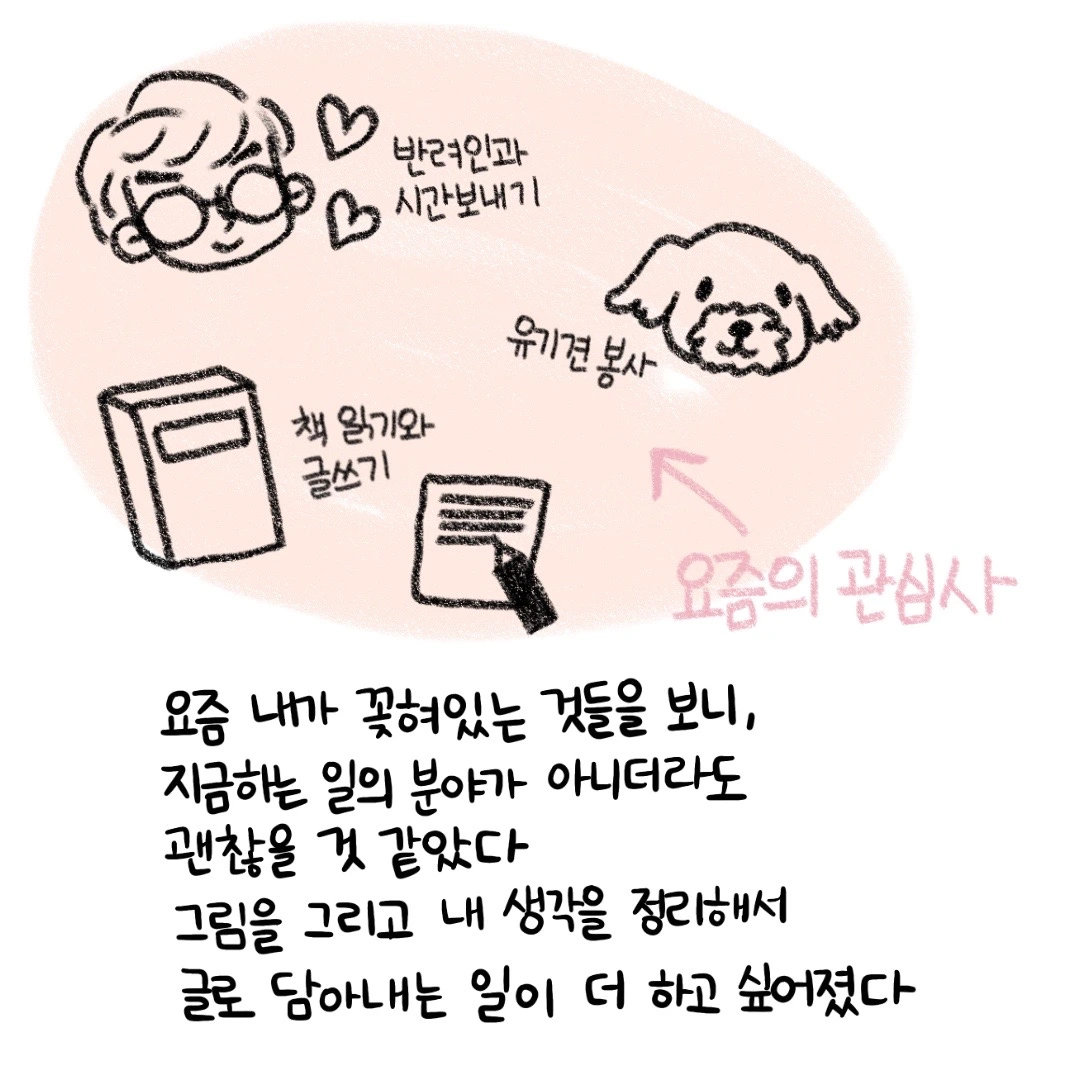 반려인과
시간보내기
유기견 봉사
책 읽기와
글쓰기
요즘의 관심사
요즘 내가 꽂혀있는 것들을 보니,
지금하는 일의 분야가 아니더라도
괜찮을 것 같았다
그림을 그리고 내 생각을 정리해서
글로 담아내는 일이 더 하고 싶어졌다